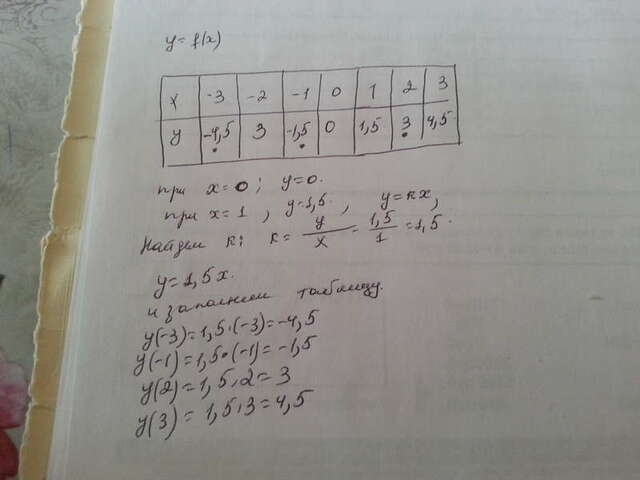 y = f(x)
x -3 -2 -1 0 1 2 3
y -4,5 3 -1,5 0 1,5 3 4,5
при x=0; y=0.
при x=1, y=1,5, y=kx,
Найдем k: k = y/x = 1,5/1 = 1,5.
y=1,5x.
и заполнем таблицу.
y(-3)=1,5·(-3)=-4,5
y(-1)=1,5·(-1)=-1,5
y(2)=1,5·2=3
y(3)=1,5·3=4,5